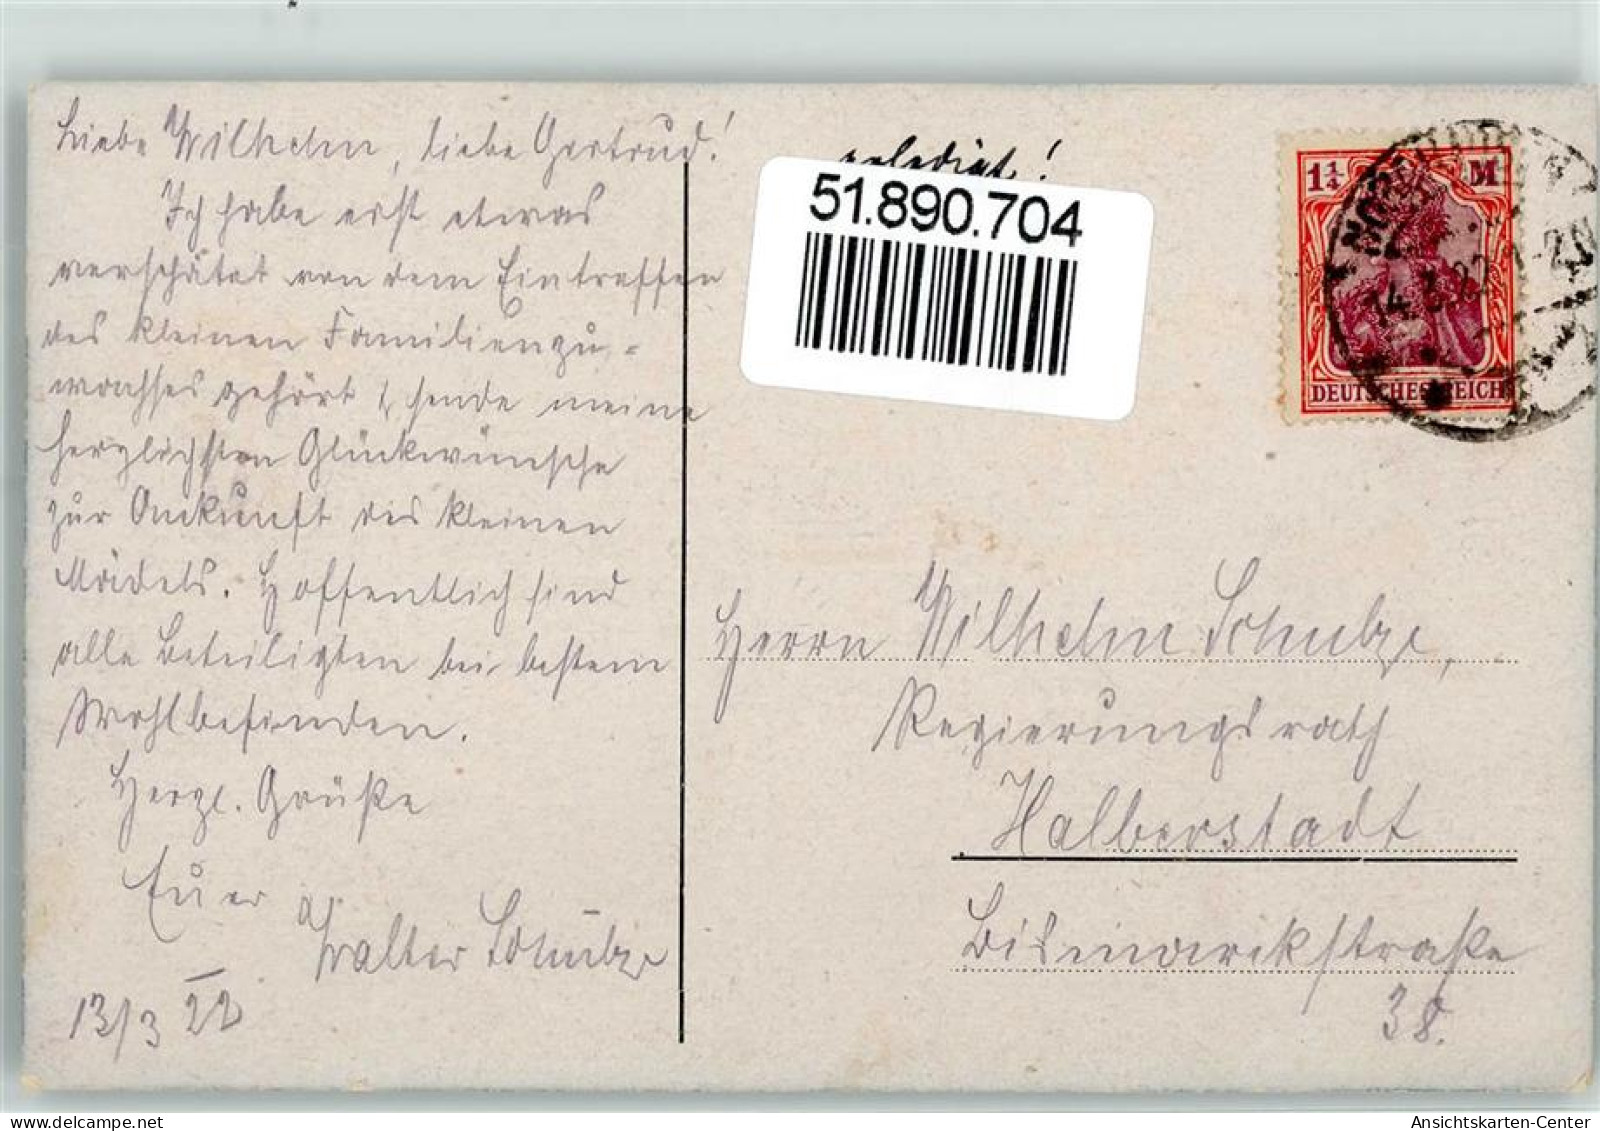 Liebe Wilhelm, liebe Gertrud!
Ich habe erst etwas
verspätet von dem Eintreffen
des kleinen Familienzu-
wachses gehört u. sende meine
herzlichsten Glückwünsche
zur Ankunft des kleinen
Mädels. Hoffentlich sind
alle Beteiligten bei bestem
Wohlbefinden.
Herzl. Grüße
Euer
Walter Schultze
13/3 22
erledigt!
51.890.704
1¼ M
DEUTSCHES REICH
14.3.22
Herrn Wilhelm Schultze,
Regierungsrath
Halberstadt
Bismarckstraße
38.
Ansichtskarten-Center